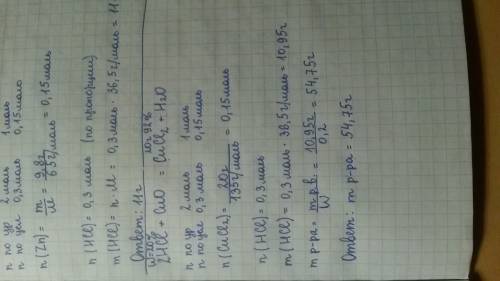 n по ур 2 моль 1 моль
n по усл 0,3 моль 0,15 моль
n(Zn) = m/M = 9,8г/65г/моль = 0,15 моль
n(HCl) = 0,3 моль (по пропорции)
m(HCl) = n·M = 0,3 моль · 36,5 г/моль = 11
Ответ: 11г
w=20% 20г 92%
2HCl + CuO = CuCl2 + H2O
n по ур 2 моль 1 моль
n по усл 0,3 моль 0,15 моль
n(CuCl2) = 20г/135г/моль = 0,15 моль
n(HCl) = 0,3 моль
m(HCl) = 0,3 моль · 38,5 г/моль = 10,95г
m р-ра = m р.в./W = 10,95г/0,2 = 54,75г
Ответ: m р-ра = 54,75г